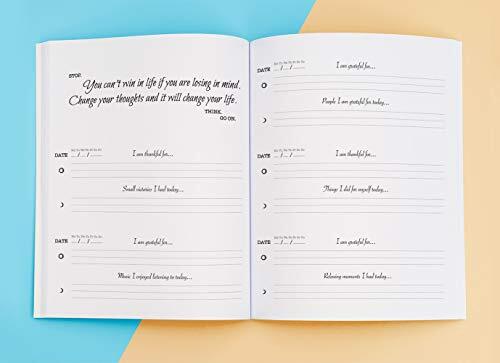 STOP.
You can't win in life if you are losing in mind.
Change your thoughts and it will change your life.
THINK.
GO ON.
Mo Tu We Th Fr Sa Su
DATE __ / __ / ____ I am thankful for...
Small victories I had today...
Mo Tu We Th Fr Sa Su
DATE __ / __ / ____ I am grateful for...
Music I enjoyed listening to today...
Mo Tu We Th Fr Sa Su
DATE __ / __ / ____ I am grateful for...
People I am grateful for today...
Mo Tu We Th Fr Sa Su
DATE __ / __ / ____ I am thankful for...
Things I did for myself today...
Mo Tu We Th Fr Sa Su
DATE __ / __ / ____ I am grateful for...
Relaxing moments I had today...